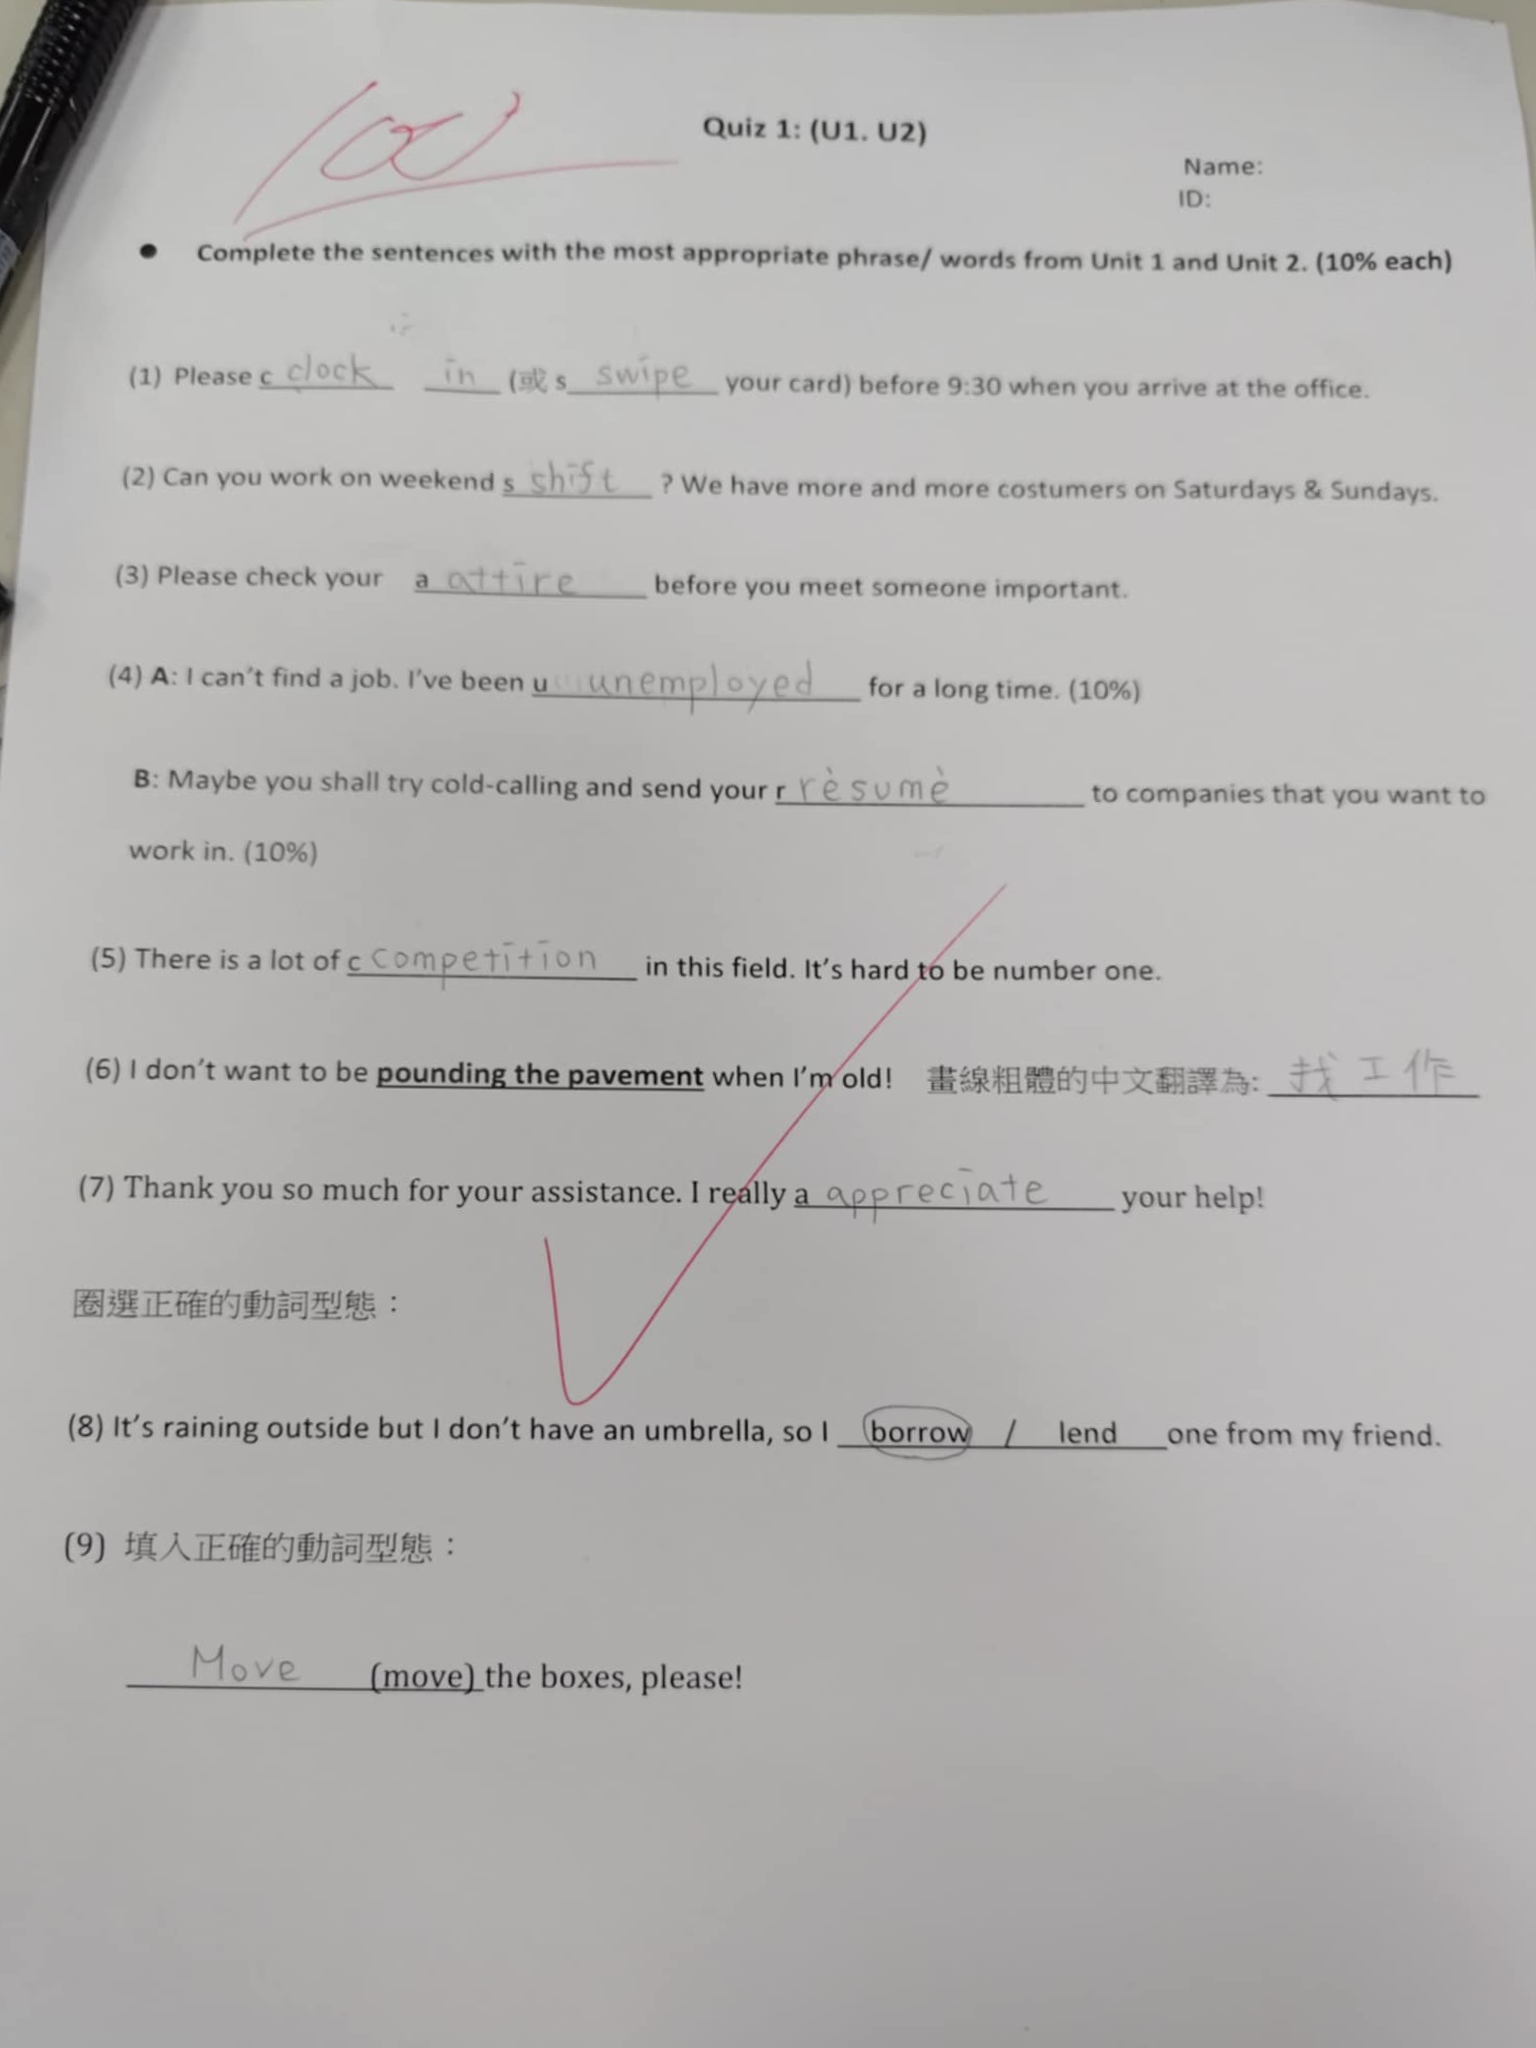 100
Quiz 1: (U1. U2)
Name:
ID:
● Complete the sentences with the most appropriate phrase/ words from Unit 1 and Unit 2. (10% each)
(1) Please c clock in (或 s swipe your card) before 9:30 when you arrive at the office.
(2) Can you work on weekend s shift ? We have more and more costumers on Saturdays & Sundays.
(3) Please check your a attire before you meet someone important.
(4) A: I can't find a job. I've been u unemployed for a long time. (10%)
B: Maybe you shall try cold-calling and send your r rèsumè to companies that you want to
work in. (10%)
(5) There is a lot of c competition in this field. It's hard to be number one.
(6) I don't want to be pounding the pavement when I'm old! 畫線粗體的中文翻譯為: 找工作
(7) Thank you so much for your assistance. I really a appreciate your help!
圈選正確的動詞型態：
(8) It's raining outside but I don't have an umbrella, so I borrow / lend one from my friend.
(9) 填入正確的動詞型態：
Move (move) the boxes, please!